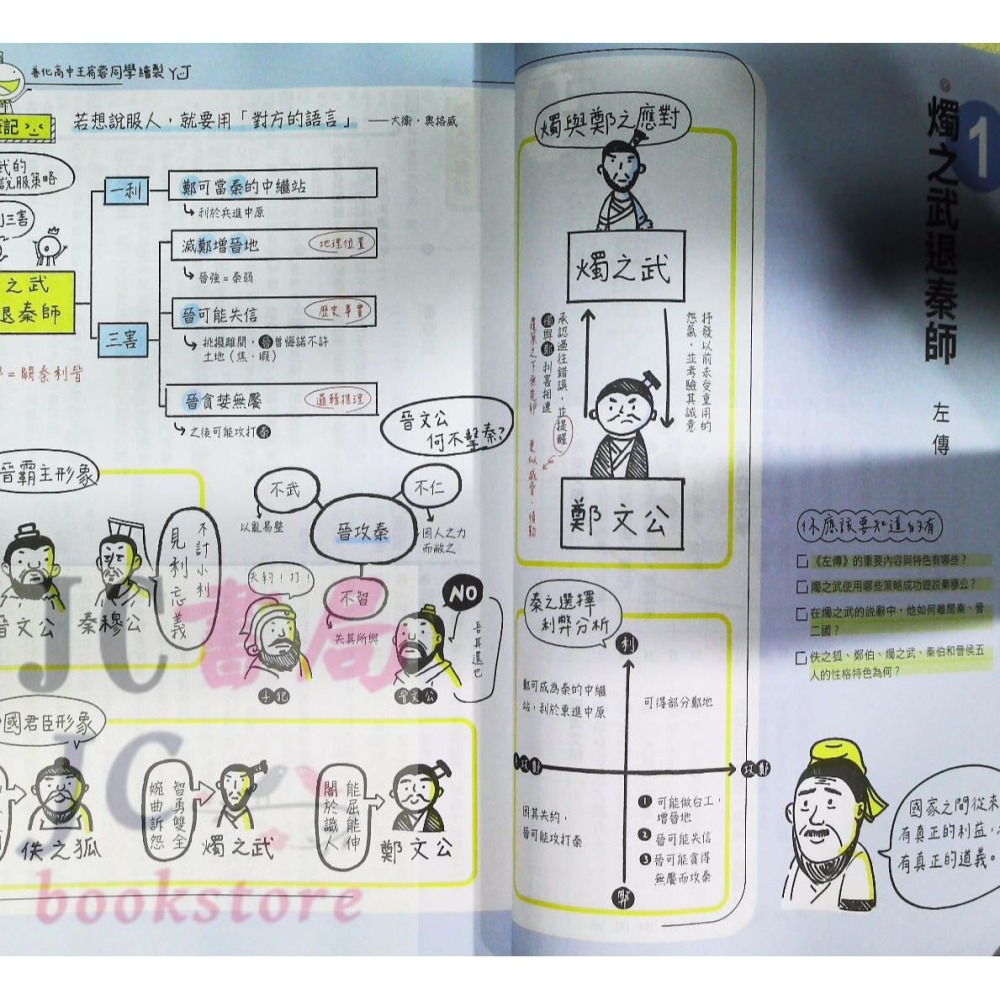 善化高中王宥蓉同學繪製 YJ
筆記
若想說服人，就要用「對方的語言」 ——大衛・奧格威
武的
說服策略
三害
之武
退秦師
一利
鄭可當秦的中繼站
利於兵進中原
三害
滅鄭增晉地
地理位置
晉強=秦弱
晉可能失信
歷史事實
挑撥離間，晉曾悔諾不許
土地（焦、瑕）
晉貪婪無饜
邏輯推理
之後可能攻打秦
=闕秦利晉
晉文公
何不擊秦?
晉霸主形象
晉文公
秦穆公
不討小利
見利忘義
晉攻秦
不武
以亂易整
不仁
因人之力
而敝之
不智
失其所與
失約！打！
子犯
NO
吾其還也
晉文公
國君臣形象
佚之狐
智勇雙全
婉曲訴怨
燭之武
能屈能伸
闇於識人
鄭文公
燭與鄭之應對
燭之武
抒發以前未受重用的
怨氣，並考驗其誠意
承認過往錯誤，並提醒
燭與鄭利害相連
鄭文公
秦之選擇
利弊分析
利
鄭可成為秦的中繼
站，利於東進中原
可得部分鄭地
攻鄭
因其失約，
晉可能攻打秦
1 可能做白工，
增晉地
2 晉可能失信
3 晉可能貪得
無饜而攻秦
弊
1
燭之武退秦師
左傳
你應該要知道的有
《左傳》的重要內容與特色有哪些？
燭之武使用哪些策略成功遊說秦穆公？
在燭之武的說辭中，他如何離間秦、晉
二國？
佚之狐、鄭伯、燭之武、秦伯和晉侯五
人的性格特色為何？
國家之間從來
有真正的利益，
有真正的道義。
JC書局
JC
bookstore